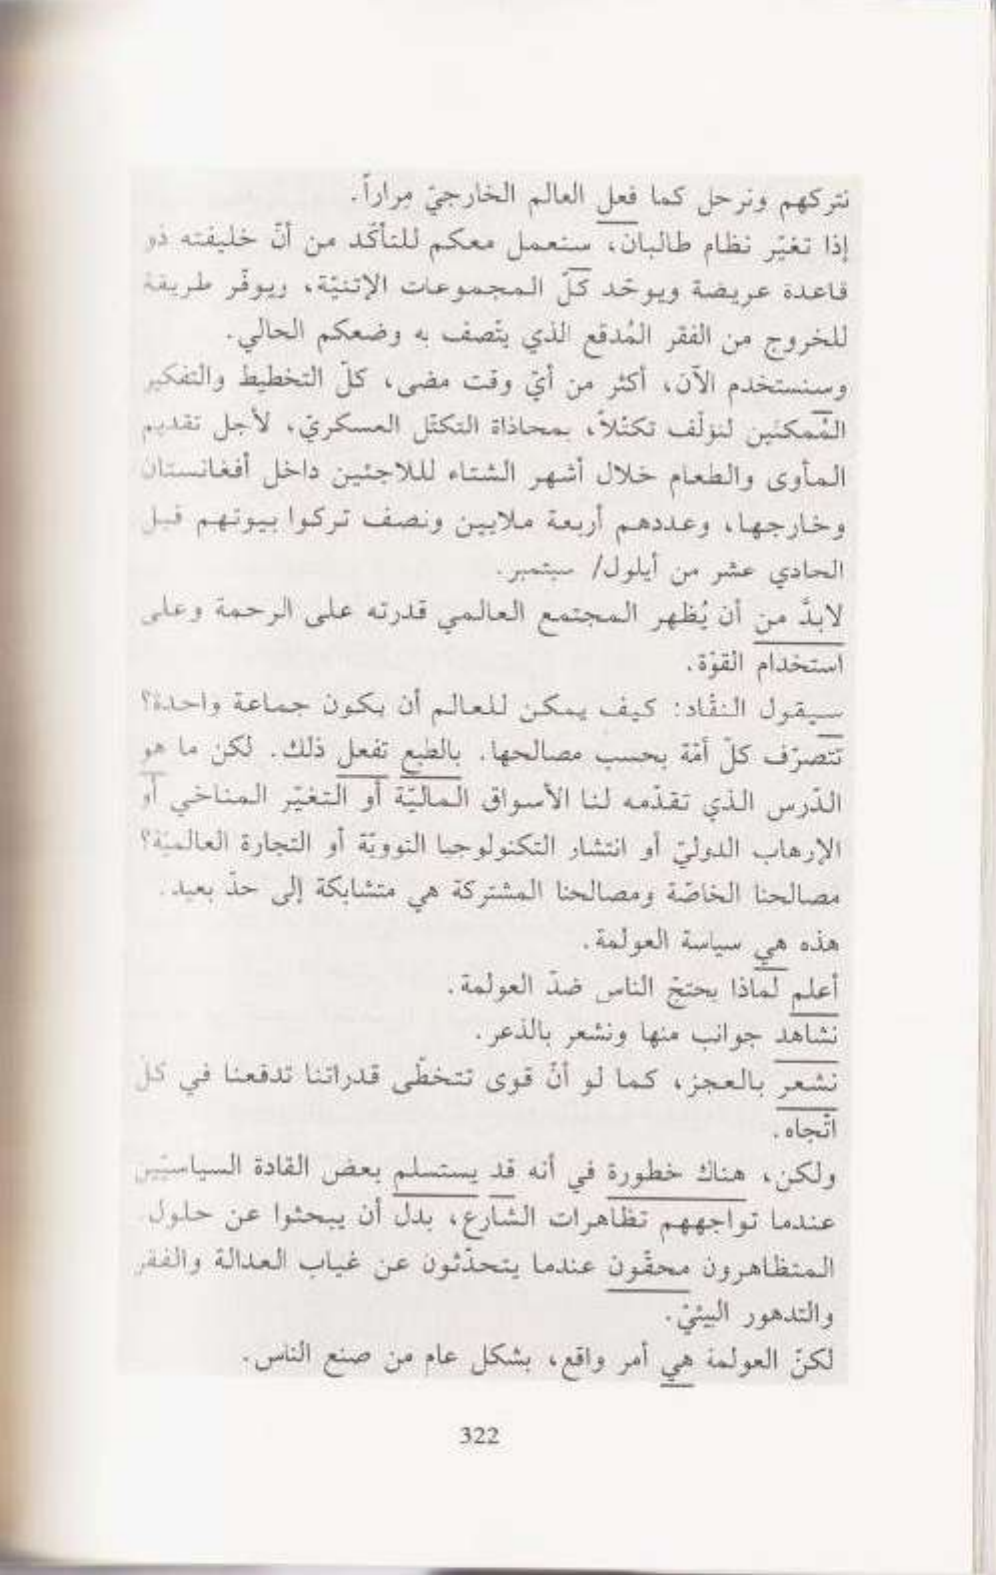 نتركهم ونرحل كما فعل العالم الخارجيّ مراراً.
إذا تغيّر نظام طالبان، سنعمل معكم للتأكّد من أنّ خليفته ذو
قاعدة عريضة ويوحّد كلّ المجموعات الإتنيّة، ويوفّر طريقة
للخروج من الفقر المُدقع الذي يتّصف به وضعكم الحالي.
وسنستخدم الآن، أكثر من أيّ وقت مضى، كلّ التخطيط والتفكير
المُمكنَين لنؤلّف تكتّلاً، بمحاذاة التكتّل العسكريّ، لأجل تقديم
المأوى والطعام خلال أشهر الشتاء للاجئين داخل أفغانستان
وخارجها، وعددهم أربعة ملايين ونصف تركوا بيوتهم قبل
الحادي عشر من أيلول/ سبتمبر.
لابدَّ من أن يُظهر المجتمع العالمي قدرته على الرحمة وعلى
استخدام القوّة.
سيقول النقّاد: كيف يمكن للعالم أن يكون جماعة واحدة؟
تتصرّف كلّ أمّة بحسب مصالحها. بالطبع تفعل ذلك. لكن ما هو
الدّرس الذي تقدّمه لنا الأسواق الماليّة أو التغيّر المناخي أو
الإرهاب الدوليّ أو انتشار التكنولوجيا النوويّة أو التجارة العالميّة؟
مصالحنا الخاصّة ومصالحنا المشتركة هي متشابكة إلى حدّ بعيد.
هذه هي سياسة العولمة.
أعلم لماذا يحتجّ الناس ضدّ العولمة.
نشاهد جوانب منها ونشعر بالذعر.
نشعر بالعجز، كما لو أنّ قوى تتخطّى قدراتنا تدفعنا في كلّ
اتّجاه.
ولكن، هناك خطورة في أنه قد يستسلم بعض القادة السياسيّين
عندما تواجههم تظاهرات الشارع، بدل أن يبحثوا عن حلول.
المتظاهرون محقّون عندما يتحدّثون عن غياب العدالة والفقر
والتدهور البيئيّ.
لكنّ العولمة هي أمر واقع، بشكل عام من صنع الناس.
322